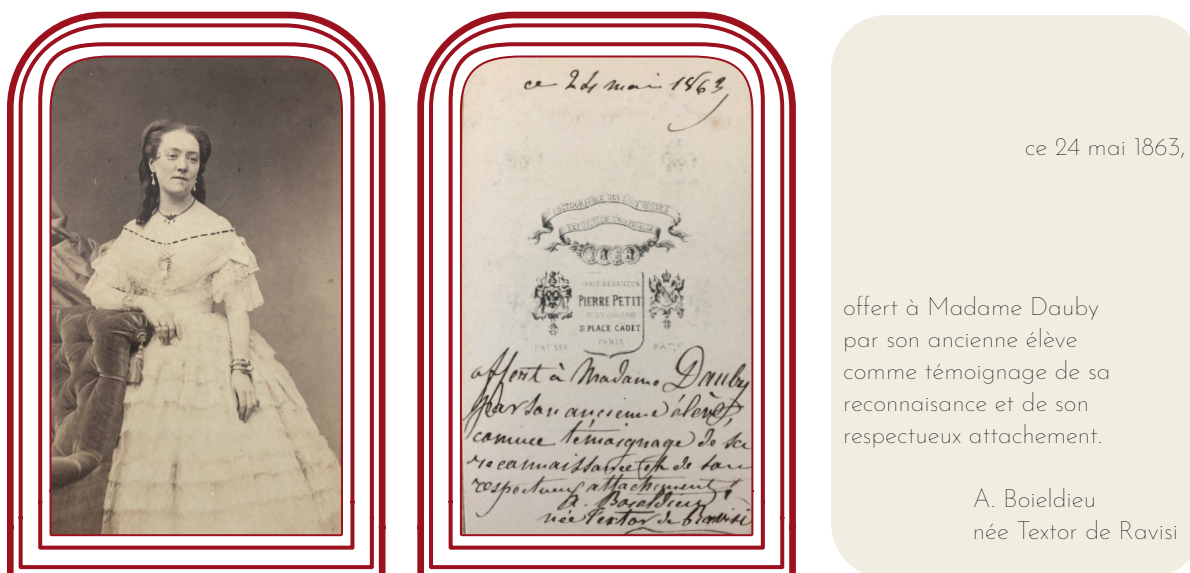 ce 24 mai 1863,
PHOTOGRAPHIE DES
EXPOSITION UNIVERSELLE
PIERRE PETIT
31 PLACE CADET
PARIS
offert à Madame Dauby
par son ancienne élève,
comme témoignage de sa
reconnaissance et de son
respectueux attachement.
A. Boieldieu
née Textor de Ravisi
ce 24 mai 1863,
offert à Madame Dauby
par son ancienne élève
comme témoignage de sa
reconnaisance et de son
respectueux attachement.
A. Boieldieu
née Textor de Ravisi